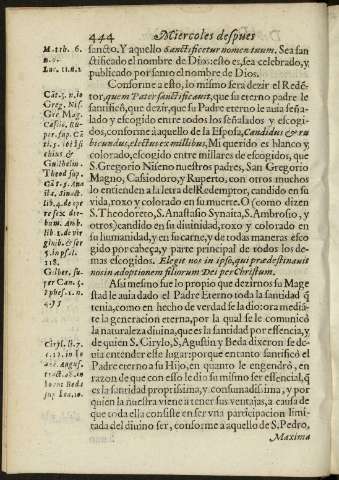 444 Miercoles despues
sancto. Y aquello Sanctificetur nomen tuum. Sea san
ctificado el nombre de Dios: esto es, sea celebrado, y
publicado por santo el nombre de Dios.
Conforme a esto, lo mismo sera dezir el Redẽ-
tor, quem Pater sanctificauit, que su eterno padre le
santificò, que dezir, que su Padre eterno le auia seña-
lado y escogido entre todos los señalados y escogi-
dos, conforme à aquello de la Esposa, Candidus & ru
bicundus, electus ex millibus, Mi querido es blanco y
colorado, escogido entre millares de escogidos, que
S. Gregorio Niseno nuestros padres, San Gregorio
Magno, Casiodoro, y Ruperto, con otros muchos
lo entienden a la letra del Redemptor, candido en su
vida, roxo y colorado en su muerte. O (como dizen
S. Theodoreto, S. Anastasio Synaita, S. Ambrosio, y
otros) candido en su diuinidad, roxo y colorado en
su humanidad, y en su carne, y de todas maneras esco
gido por cabeça, y parte principal de todos los de-
mas escogidos. Elegit nos in ipso, qui prædestinauit
nos in adoptionem filiorum Dei per Christum.
Asi mesmo fue lo propio que dezirnos su Mage
stad le auia dado el Padre Eterno toda la santidad q̃
tenia, como en hecho de verdad se la dio: ora media-
te la generacion eterna, por la qual se le comunicò
la naturaleza diuina, que es la santidad por essencia, y
de quien S. Cirylo, S. Agustin y Beda dixeron se de-
uia entender este lugar: porque entanto santificò el
Padre eterno a su Hijo, en quanto le engendrò, en
razon de que con esso le dio su mismo ser essencial, q̃
es la santidad proprissima, y consumadissima, y por
quien la nuestra viene a tener sus ventajas, a causa de
que toda ella consiste en ser vna participacion limi-
tada del diuino ser, conforme a aquello de S. Pedro,
Maxima
Matth. 6.
Luc. 11. a. 2
Cãt. 5. v. 10
Greg. Nis.
Gre Mag.
Casiio, Ru-
per. sup. Cã
Guilhelm.
Theod sup.
Cãt. 5. Ana
sta. Sinaict.
lib. 4. de ope
re sex die-
rum. Amb.
lib. 1. de vir
ginib. & ser
5. in psal.
118.
Gilber. su-
per Can. 5.
Ephes. 1. n.
4. 5.
Cirpl. li. 7.
c. 11. in Io
. August.
tract. 48. in
Ioann Beda
sup Ioa. 10.